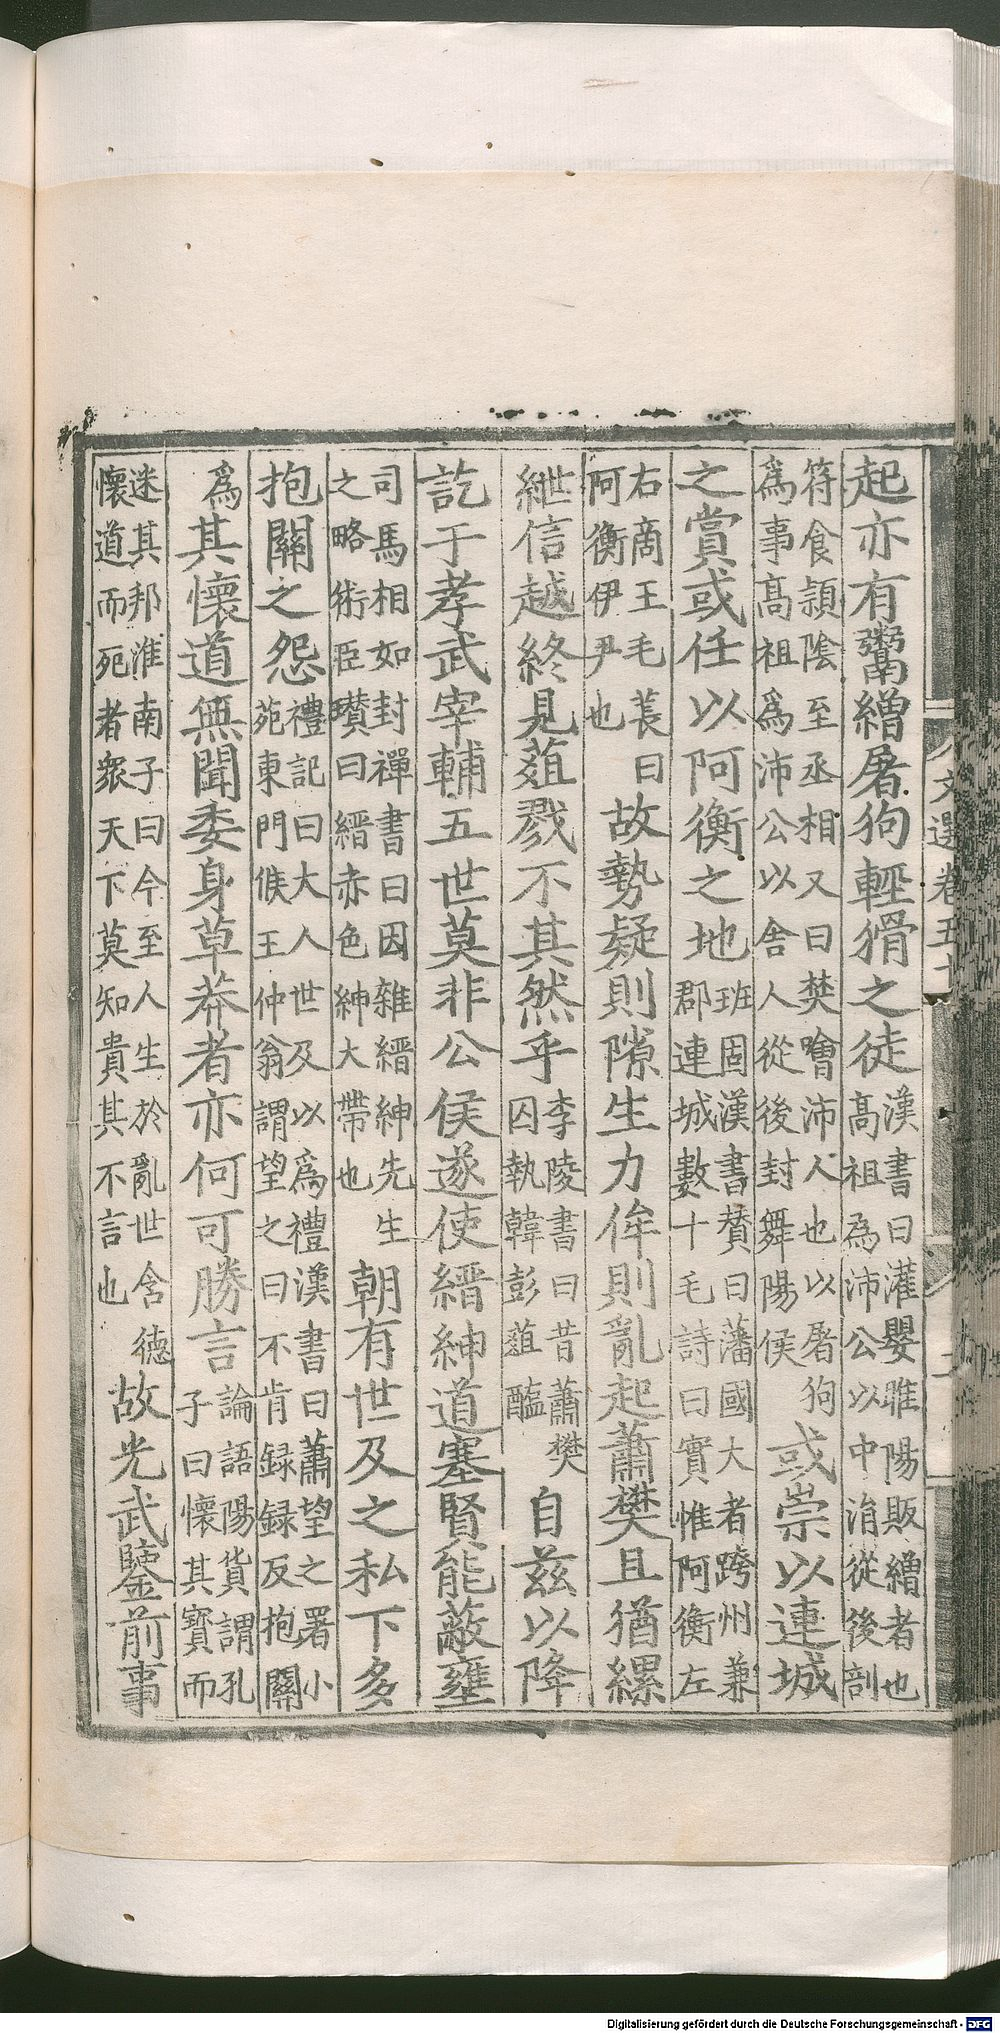 文選卷五十
二
起亦有鬻繒屠狗輕猾之徒漢書曰灌嬰睢陽販繒者也高祖為沛公以中涓從後剖
符食潁陰至丞相又曰樊噲沛人也以屠狗為事高祖爲沛公以舍人從後封舞陽侯或崇以連城
之賞或任以阿衡之地班固漢書賛曰藩國大者跨州兼郡連城數十毛詩曰實惟阿衡左
右商王毛萇曰阿衡伊尹也故勢疑則隙生力侔則亂起蕭樊且猶縲
紲信越終見葅戮不其然乎李陵書曰昔蕭樊囚執韓彭葅醢自兹以降
訖于孝武宰輔五世莫非公侯遂使縉紳道塞賢能蔽壅
司馬相如封禪書曰因雜縉紳先生之略術臣瓉曰縉赤色紳大帶也朝有世及之私下多
抱關之怨禮記曰大人世及以爲禮漢書曰蕭望之署小苑東門候王仲翁謂望之曰不肯録録反抱關
爲其懷道無聞委身草莽者亦何可勝言論語陽貨謂孔子曰懷其寳而
迷其邦淮南子曰今至人生於亂世含德懷道而死者衆天下莫知貴其不言也故光武鑒前事
Digitalisierung gefördert durch die Deutsche Forschungsgemeinschaft - DFG